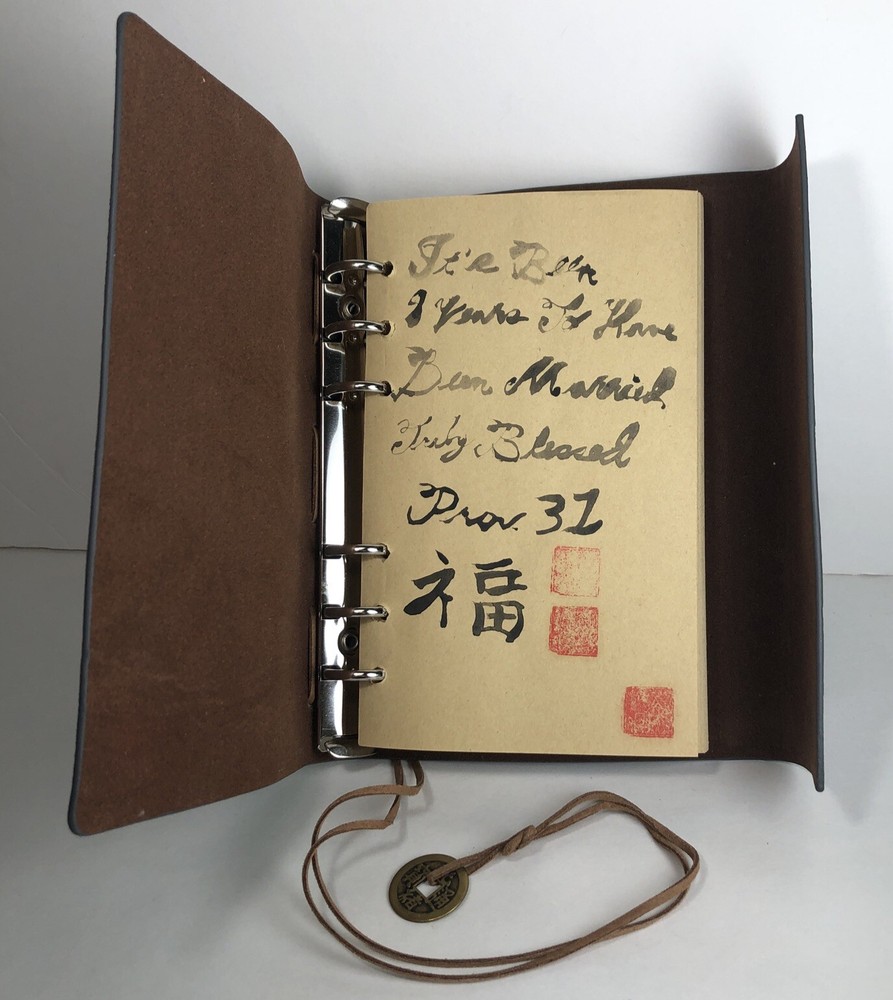 It's Been
8 Years To Have
Been Married
Truly Blessed
Prov. 31
福